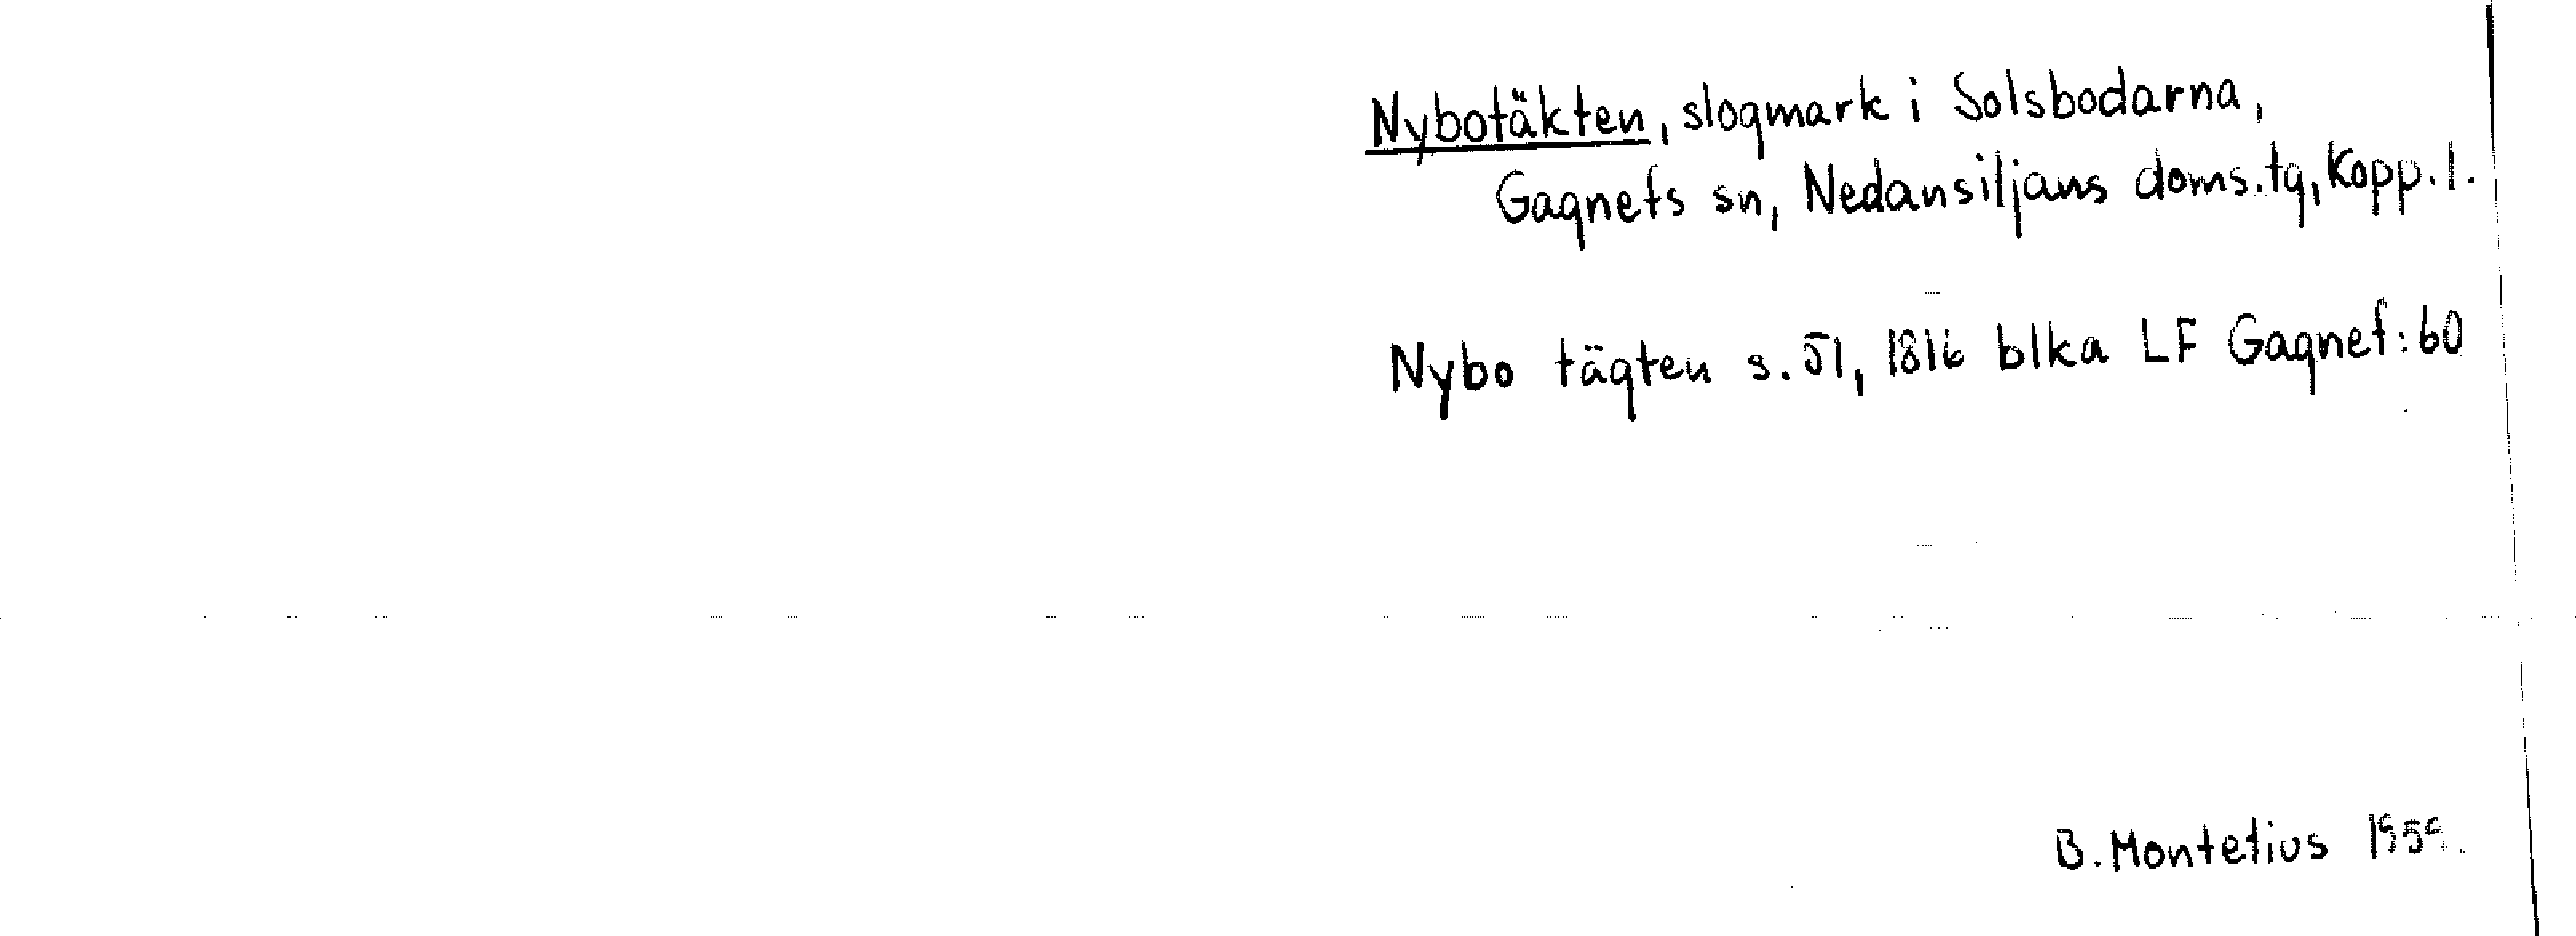 Nybotäkten, slogmark i Solsbodarna,
Gagnefs sn, Nedansiljans doms.tg, Kopp. l.
Nybo tägten s. 51, 1816 blka LF Gagnef: 60
B. Montelius 1959.